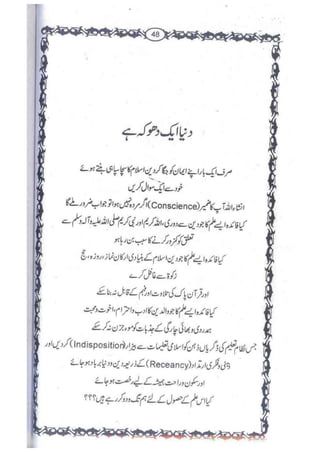 48
دنیا ایک دھوکہ ہے
صرف ایک بار اپنے ایمان کو جگا کر دین اسلام کا سچا سپاہی بنتے ہوئے
خود سے ایک سوال کریں
انشاءاللہ آپ کا ضمیر (Conscience) اگر مردہ نہیں ہوا تو جواب ضرور ملے گا
کیا فائدہ ایسے علم کا جو دین سے دوری، اللہ کریم اور نبی کریم صلی اللہ علیہ وآلہ وسلم سے
تعلق کو کمزور کرنے کا سبب بن رہا ہو
کیا فائدہ ایسے علم کا جو دین اسلام کے بنیادی ارکان نماز، روزہ، حج
زکوٰۃ سے غافل کر دے
اور قرآن پاک کی تلاوت اور فہم کے قابل نہ بنا سکے
کیا فائدہ ایسے علم کا جو والدین کا ادب و احترام، اخوت و محبت
ہمدردی و بھائی چارگی کے جذبات کو موجزن نہ کر سکے
جس نظام تعلیم کی ڈگریاں ذہن کو اسلامی تعلیمات سے بیزار (Indisposition) کر دیں اور
ذہنی و فکری ارتداد (Receancy) کے ذریعہ دین و دنیا برباد ہو جائے
اور سکون و راحت ہمیشہ کے لیے رخصت ہو جائے
کیا اس علم کے حصول کے لئے ہم تگ و دو کر رہے ہیں؟؟؟